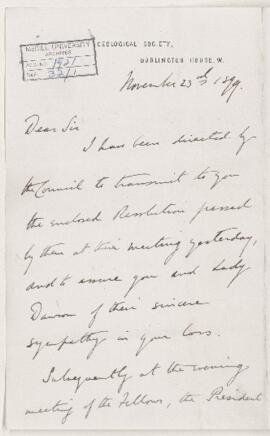 McGILL UNIVERSITY
ARCHIVES
ACC. NO. 1921
REF.
GEOLOGICAL SOCIETY,
BURLINGTON HOUSE, W.
November 23rd 1899.
Dear Sir
I have been directed by
the Council to transmit to you
the enclosed Resolution passed
by them at their meeting yesterday,
and to assure you and Lady
Dawson of their sincere
sympathy in your loss.
Subsequently at the evening
meeting of the Fellows, the President